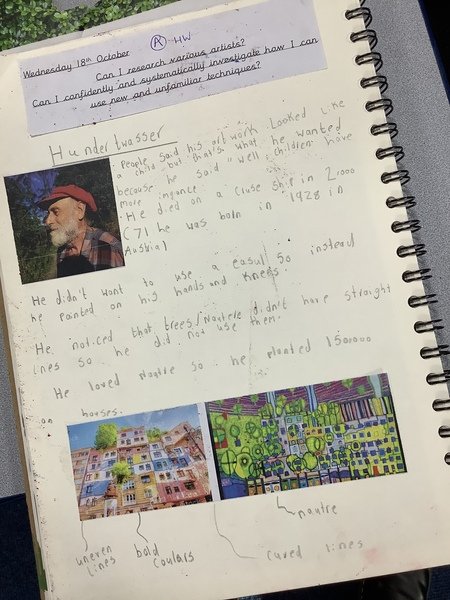 Wednesday 18th October
(A) HW
Can I research various artists?
Can I confidently and systematically investigate how I can
use new and unfamiliar techniques?
Hundertwasser
People said his art work Looked Like
a child but that's what he wanted
because he said "well children have
more
He died on a cruse ship in 2000
(71 he was born in 1928 in
Austria)
He didn't want to use a easul so instead
he painted on his hands and knees
He noticed that trees/noutere didn't have straight
lnes so he did not use them.
He loved noutre so he planted 150,000
on houses.
uneven
lines
bold
coulars
noutre
cured lines